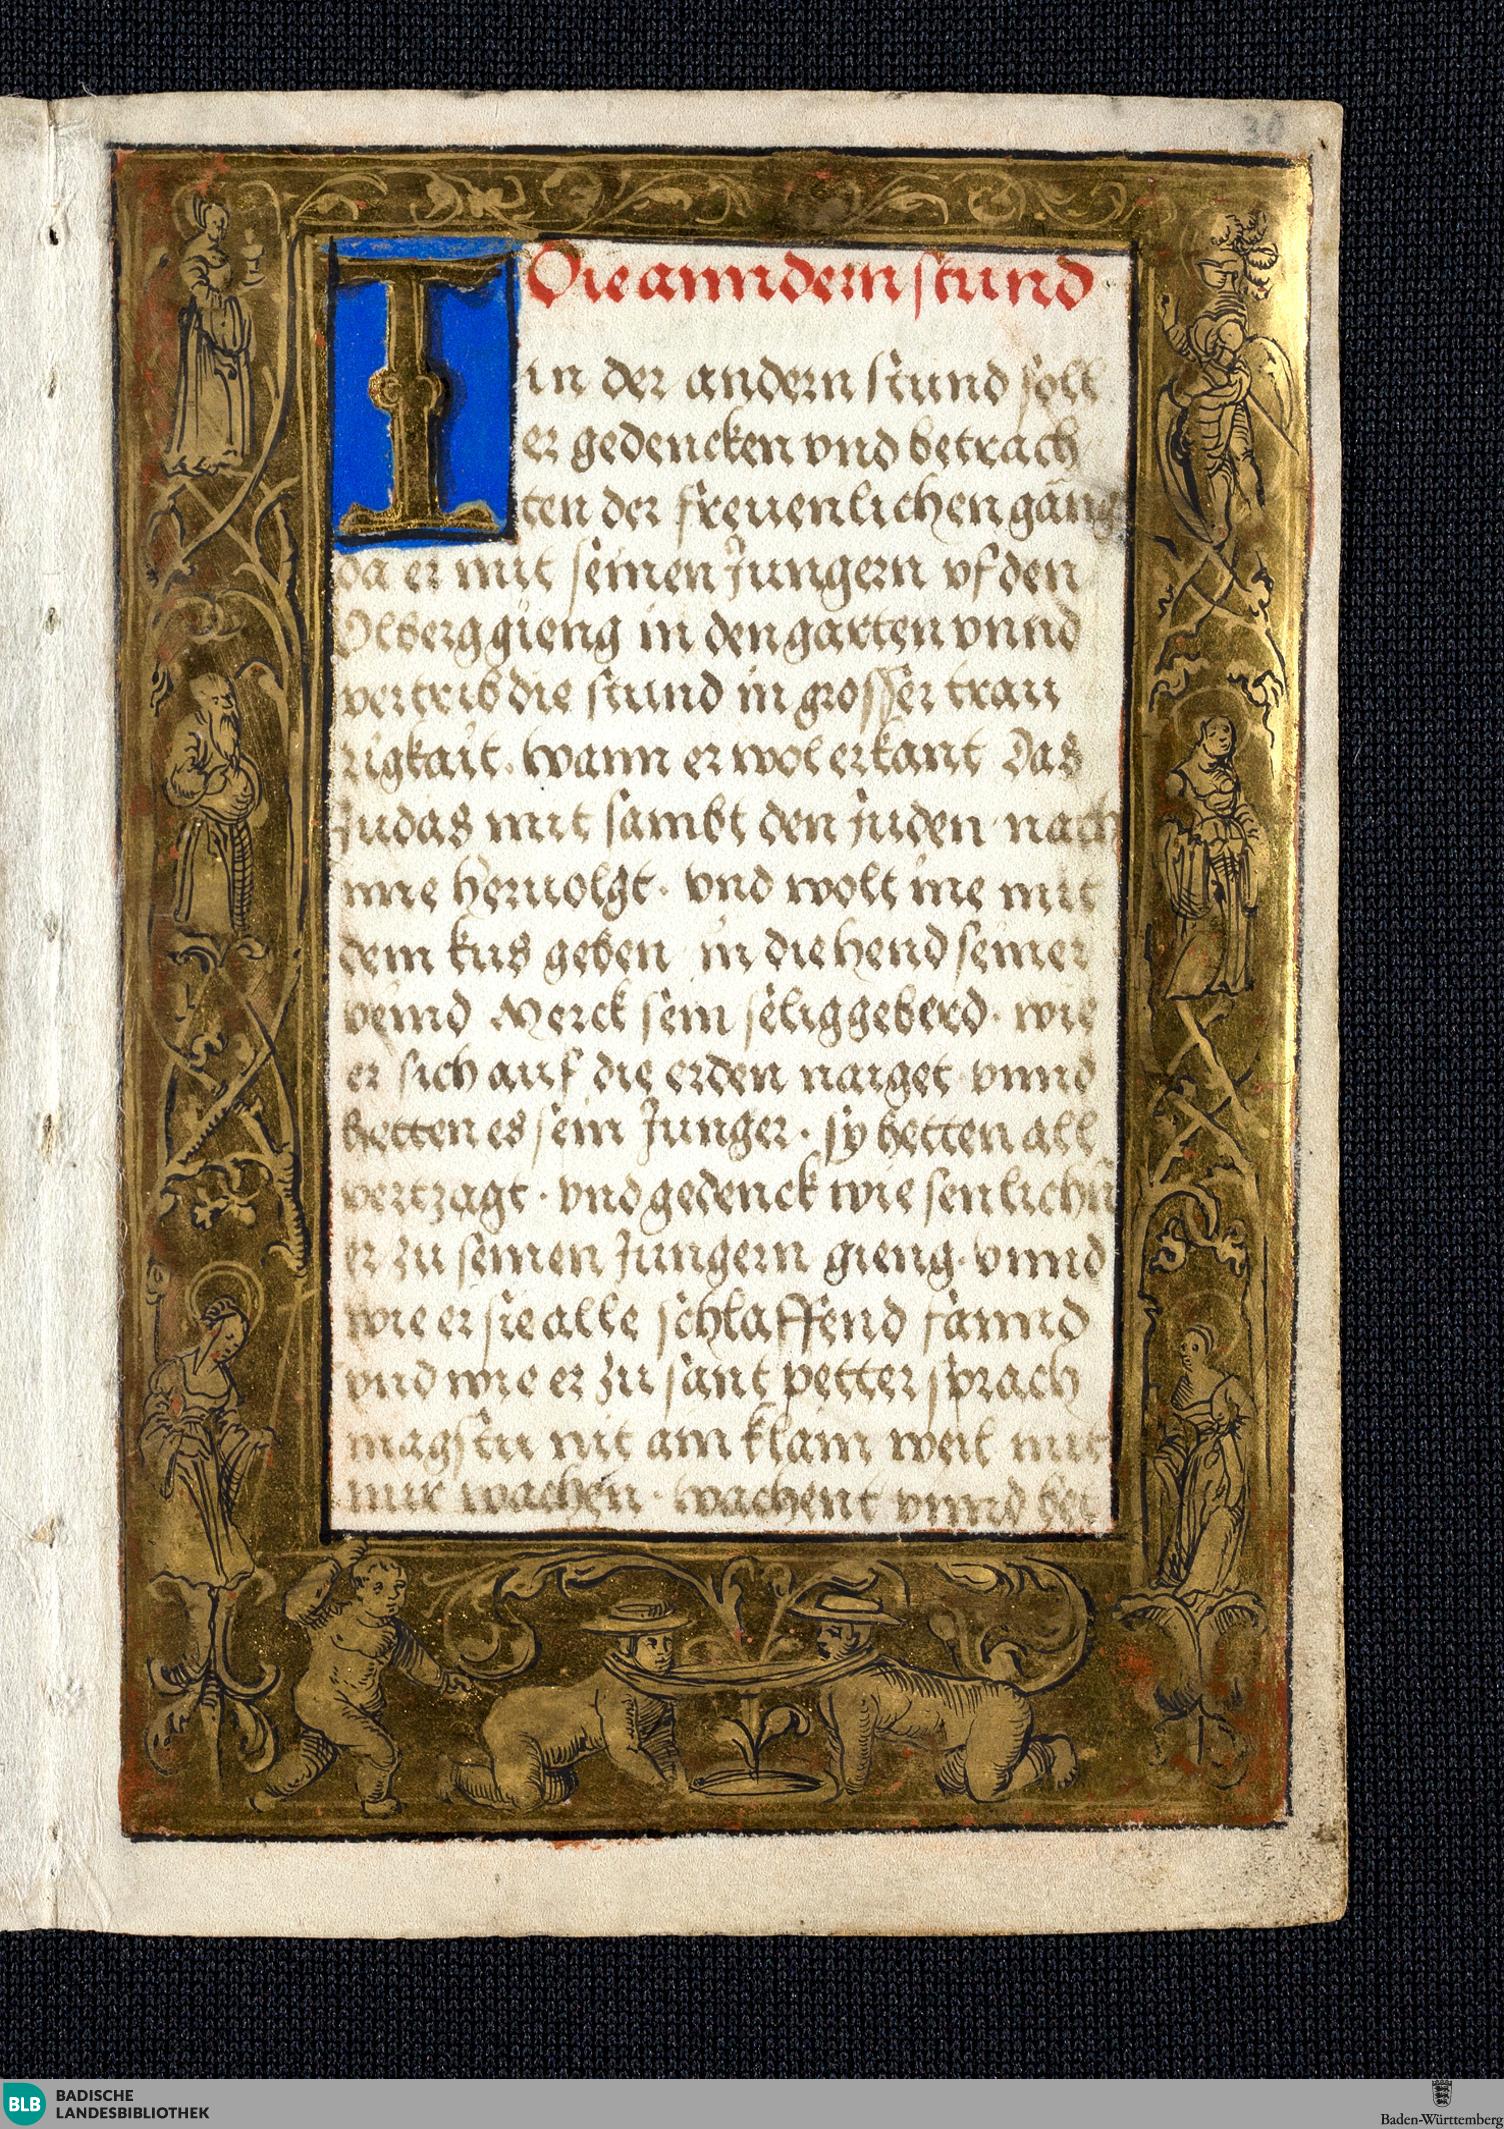 30
Die anndern stund
I
in der andern stund soll
er gedencken vnd betrach
ten der freuenlichen gäng
da er mit seinen Jungern vf den
Olberg gieng in den garten vnnd
vertrib die stund in grosser trau
rigkait. wann er wol erkant Das
Judas mit sambt den juden nach
ime heruolgt. vnd wolt ine mit
dem kus geben in die hend seiner
veind Merck sein seliggeberd. wie
er sich auf die erden naiget vnnd
hetten es sein Junger. sy hetten all
vertzagt. vnd gedenck wie senlichn̄
er zu seinen Jungern gieng. vnnd
wie er sie alle schlaffend fannd
vnd wie er zu sant petter sprach
magstu nit ain klain weil mit
mir wachen. wachent vnnd bet
BLB BADISCHE
LANDESBIBLIOTHEK
Baden-Württemberg